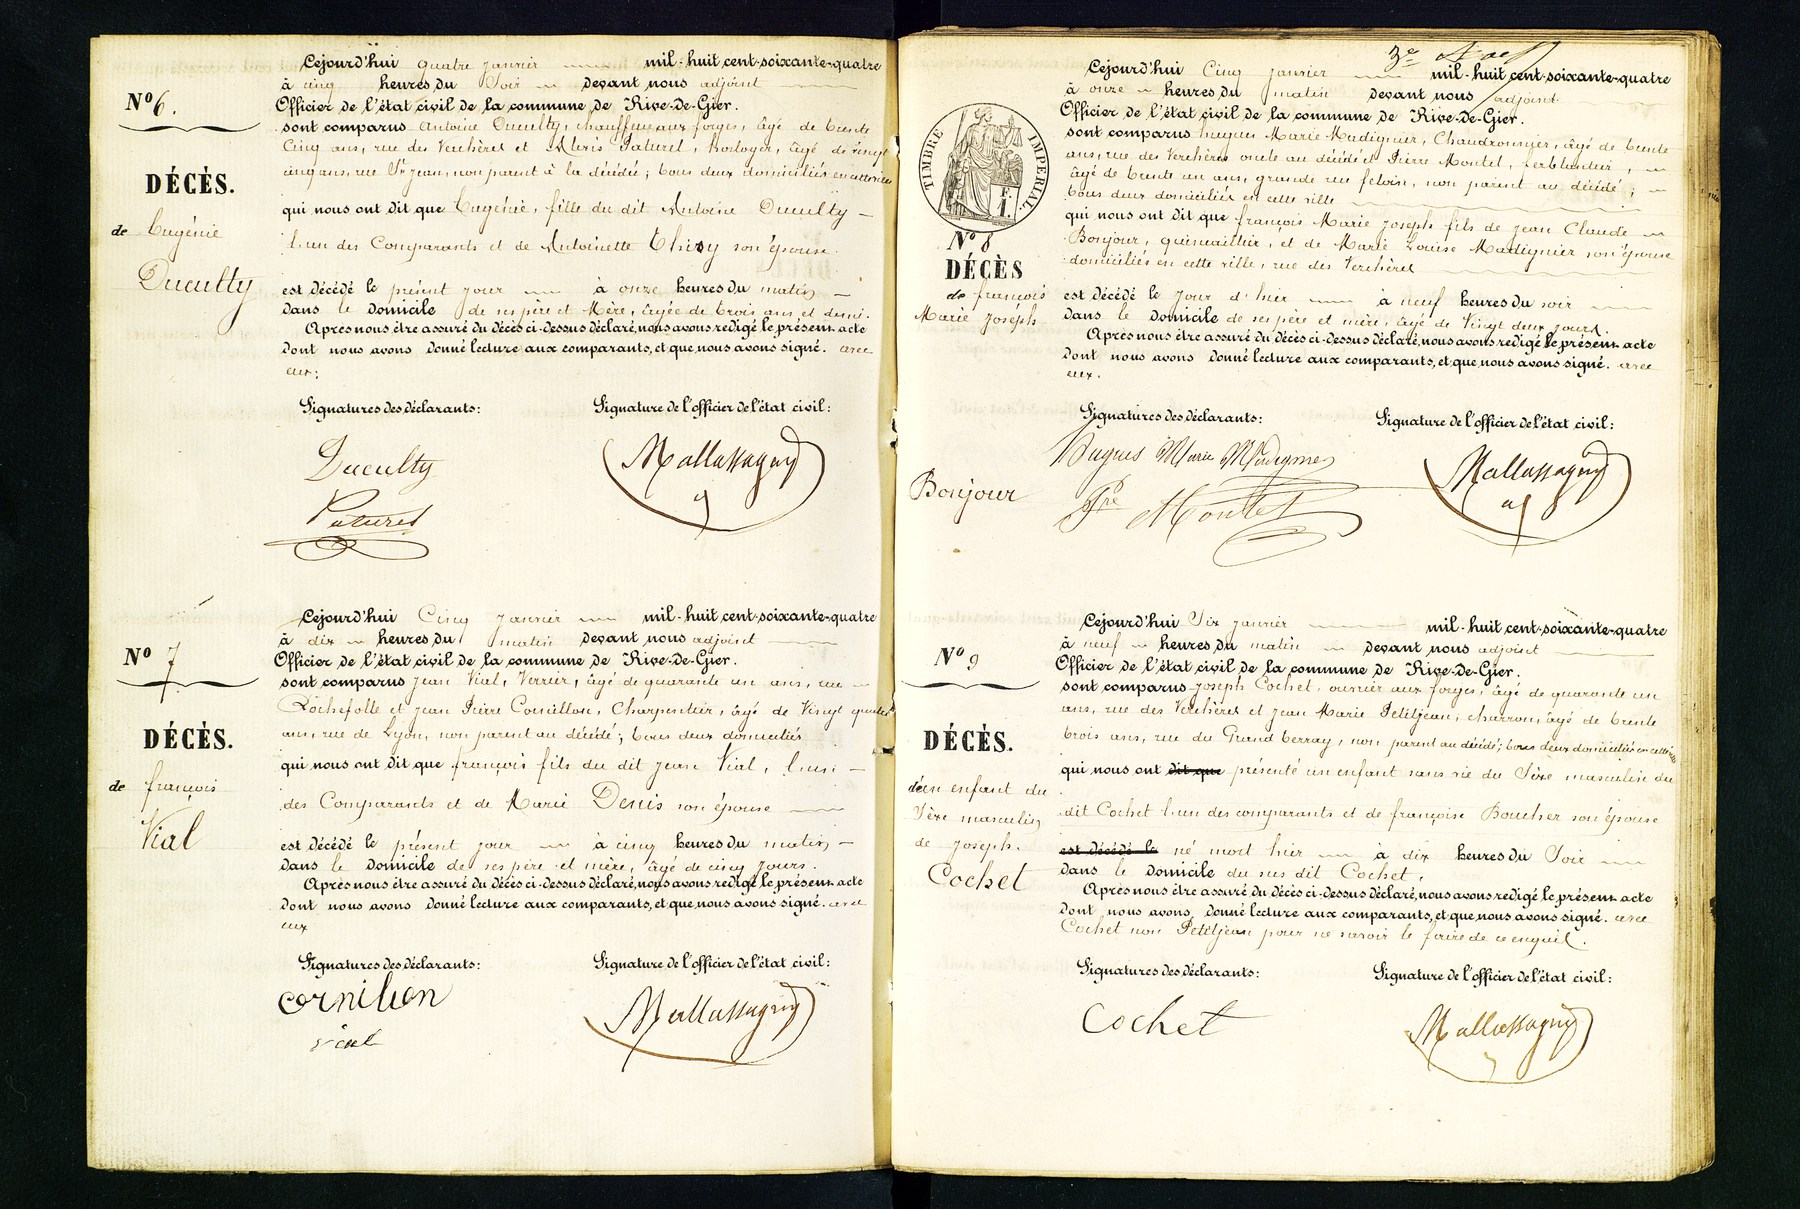 Cejourd'hui quatre janvier mil-huit cent-soixante-quatre
à cinq heures du Soir devant nous adjoint
Nº 6.
Officier de l'état civil de la commune de Rive-De-Gier.
sont comparus Antoine Ducultty, chauffeur aux forges, âgé de trente
Cinq ans, rue des Verchères et Alexis Paturel, horloger, âgé de vingt
cinq ans, rue St Jean, non parent à la décédée; tous deux domiciliés en cette ville
DÉCÈS.
de Eugénie
Ducultty
qui nous ont dit que Eugénie, fille du dit Antoine Ducultty
l'un des Comparants et de Antoinette Thizy son épouse.
est décédé le présent jour à onze heures du matin
dans le domicile de ses père et Mère, âgée de trois ans et demi.
Après nous être assuré du décès ci-dessus déclaré, nous avons redigé le présent acte
dont nous avons donné lecture aux comparants, et que nous avons signé. avec
eux;
Signatures des déclarants: Signature de l'officier de l'état civil:
Ducultty
Mallassagny
Paturel
Cejourd'hui Cinq janvier mil-huit cent-soixante-quatre
à dix heures du matin devant nous adjoint
Nº 7
Officier de l'état civil de la commune de Rive-De-Gier.
sont comparus Jean Vial, Verrier, âgé de quarante un ans, rue
Rochefolle et Jean Pierre Cornillon, Charpentier, âgé de Vingt quatre
ans, rue de Lyon, non parent au décédé; tous deux domiciliés
DÉCÈS.
de françois
Vial
qui nous ont dit que françois fils du dit Jean Vial, l'un
des Comparants et de Marie Denis son épouse
est décédé le présent jour à cinq heures du matin
dans le domicile de ses père et mère, âgé de cinq jours.
Après nous être assuré du décès ci-dessus déclaré, nous avons redigé le présent acte
dont nous avons donné lecture aux comparants, et que nous avons signé. avec
eux
Signatures des déclarants: Signature de l'officier de l'état civil:
cornilion
Mallassagny
vial
3e
Cejourd'hui Cinq janvier mil-huit cent-soixante-quatre
à onze heures du matin devant nous adjoint
Officier de l'état civil de la commune de Rive-De-Gier.
TIMBRE IMPERIAL.
1 F.
sont comparus hugues Marie Madignier, Chaudronnier, âgé de trente
ans, rue des Verchères oncle au décédé et Pierre Montel, ferblantier,
âgé de trente un ans, grande rue feloin, non parent au décédé;
tous deux domiciliés en cette ville
Nº 8
DÉCÈS
de françois
Marie Joseph
Bonjour
qui nous ont dit que françois Marie Joseph fils de Jean Claude
Bonjour, quincaillier, et de Marie Louise Madignier son épouse
domiciliés en cette ville, rue des Verchères
est décédé le jour d'hier à neuf heures du soir
dans le domicile de ses père et mère, âgé de Vingt deux jours.
Après nous être assuré du décès ci-dessus déclaré, nous avons redigé le présent acte
dont nous avons donné lecture aux comparants, et que nous avons signé. avec
eux.
Signatures des déclarants: Signature de l'officier de l'état civil:
Hugues Marie Madignier
Mallassagny
Pre Montel
Cejourd'hui Six janvier mil-huit cent-soixante-quatre
à neuf heures du matin devant nous adjoint
Nº 9
Officier de l'état civil de la commune de Rive-De-Gier.
sont comparus Joseph Cochet, ouvrier aux forges, âgé de quarante un
ans, rue des Verchères et Jean Marie Petitjean, charron, âgé de trente
trois ans, rue du Grand terray, non parent au décédé; tous deux domiciliés en cette ville
DÉCÈS.
d'un enfant du
Sèxe masculin
de Joseph.
Cochet
qui nous ont dit que présenté un enfant sans vie du Sèxe masculin du
dit Cochet l'un des comparants et de françoise Boucher son épouse
est décédé le né mort hier à dix heures du Soir
dans le domicile du sus dit Cochet.
Après nous être assuré du décès ci-dessus déclaré, nous avons redigé le présent acte
dont nous avons donné lecture aux comparants, et que nous avons signé. avec
Cochet non Petitjean pour ne savoir le faire de ce enquil.
Signatures des déclarants: Signature de l'officier de l'état civil:
Cochet
Mallassagny